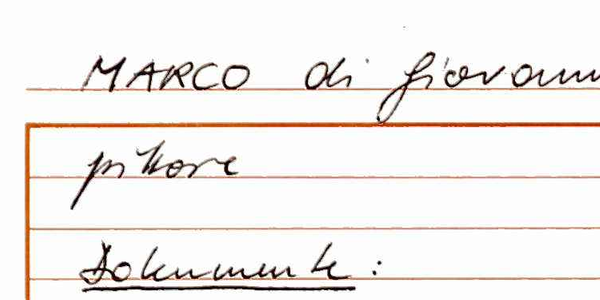 MARCO di Giovann
pittore
Dokumente: